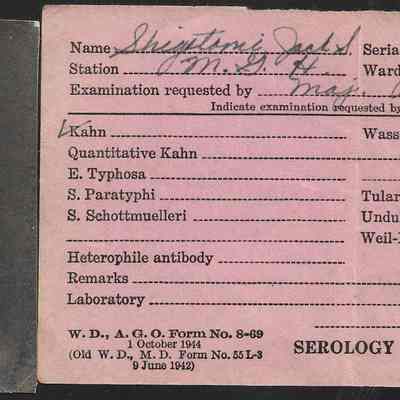 Name Shigetomi Jack S. Serial
Station M. G. H. Ward
Examination requested by Maj.
Indicate examination requested by
Kahn Wass
Quantitative Kahn
E. Typhosa
S. Paratyphi Tular
S. Schottmuelleri Undu
Weil-
Heterophile antibody
Remarks
Laboratory
W. D., A. G. O. Form No. 8-69
1 October 1944
(Old W. D., M. D. Form No. 55 L-3
9 June 1942)
SEROLOGY